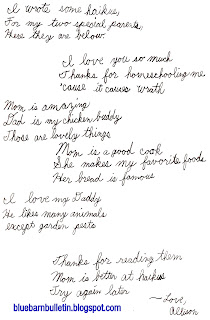 I wrote some haikus,
For my two special parents,
Here they are below.
I love you so much
Thanks for homeschooling me
'cause it causes wrath
Mom is amazing
Dad is my chicken buddy
Those are lovely things
Mom is a good cook
She makes my favorite foods
Her bread is famous
I love my Daddy
He likes many animals
except garden pests
Thanks for reading them
Mom is better at haikus
Try again later
~Love,
Allison
bluebarnbulletin.blogspot.com